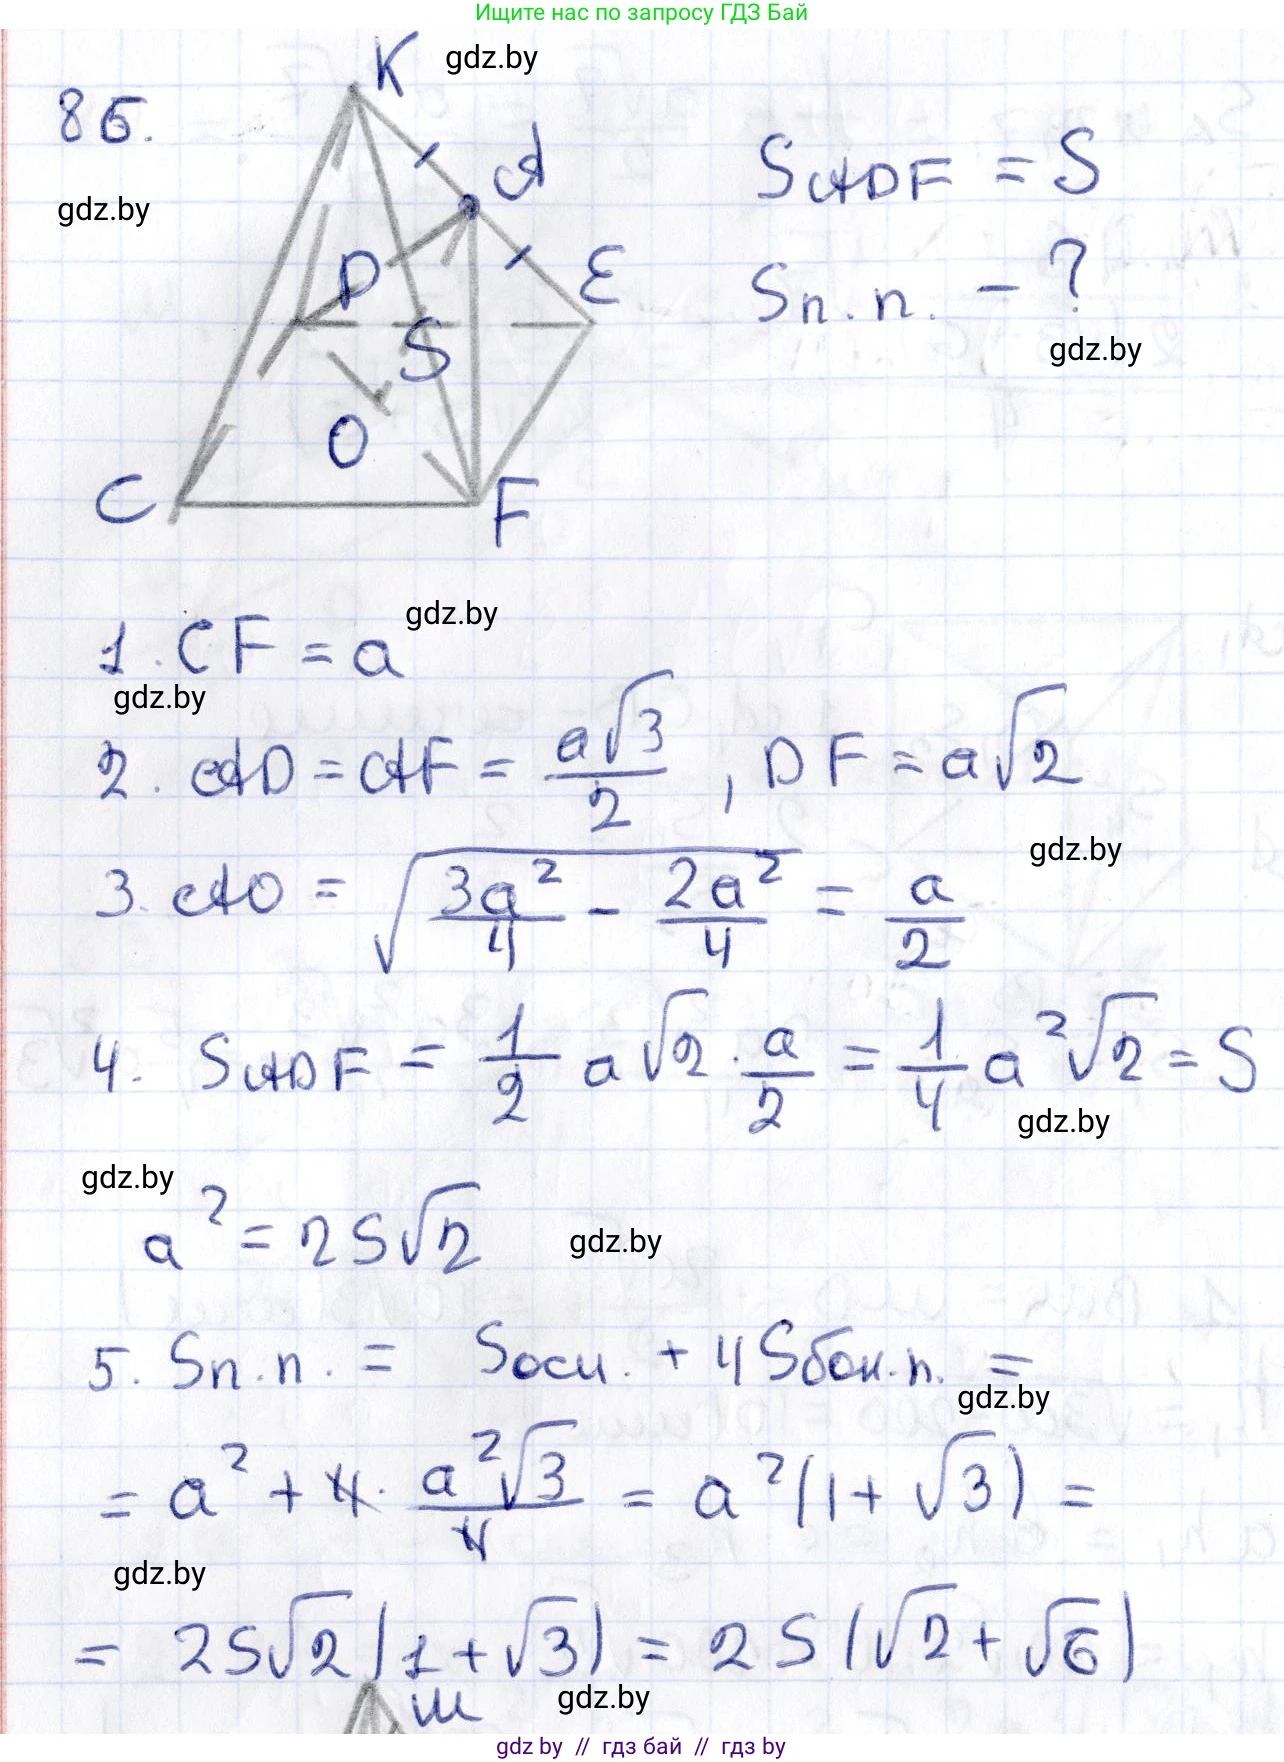 Ищите нас по запросу ГДЗ Бай
K
gdz.by
86.
A
S_{ADF} = S
gdz.by
D
E
S_{п.п.} - ?
S
gdz.by
O
C
F
gdz.by
1. CF = a
gdz.by
2. AD = AF = \frac{a\sqrt{3}}{2}, DF = a\sqrt{2}
gdz.by
3. AO = \sqrt{\frac{3a^2}{4} - \frac{2a^2}{4}} = \frac{a}{2}
4. S_{ADF} = \frac{1}{2} a\sqrt{2} \cdot \frac{a}{2} = \frac{1}{4} a^2\sqrt{2} = S
gdz.by
gdz.by
a^2 = 2S\sqrt{2}
gdz.by
5. S_{п.п.} = S_{осн.} + 4S_{бок.п.} =
gdz.by
= a^2 + 4 \cdot \frac{a^2\sqrt{3}}{4} = a^2(1 + \sqrt{3}) =
gdz.by
= 2S\sqrt{2}(1 + \sqrt{3}) = 2S(\sqrt{2} + \sqrt{6})
gdz.by
gdz.by // гдз бай // гдз by